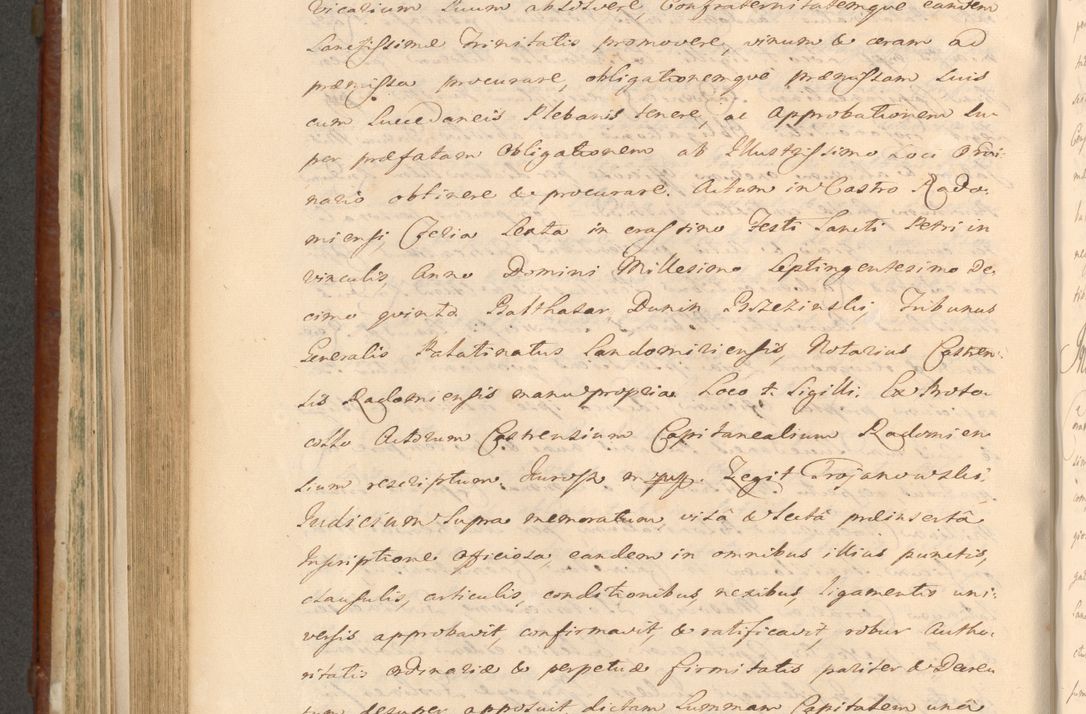 Vicarium suum absolvere, Confraternitatemque eandem
Sanctissimæ Trinitatis promovere, vinum & ceram ad
præmissa procurare, obligationemque præmissam suis
cum succedaneis Plebanis tenere, ac Approbationem su-
per præfatam Obligationem ab Illustrissimo Loci Ordi-
nario obtinere & procurare. Actum in Castro Rado-
miensi, Feria Sexta in crastino Festi Sancti Petri in
vinculis, Anno Domini Millesimo Septingentesimo De-
cimo quinto Balthasar Dunin Brzezinski, Tribunus
Generalis Palatinatus Sandomiriensis, Notarius Castren-
sis Radomiensis manu propria Loco ✝. Sigilli. Ex Proto-
collo Actorum Castrensium Capitanealium Radomien
sium rescriptum. Legit Trojanowski,
Judicium supra memoratum, visâ & lectâ præinsertâ
Inscriptione officiosa, eandem in omnibus illius punctis,
clausulis, articulis, conditionibus, nexibus, ligamentis uni-
versis approbavit, confirmavit & ratificavit, robur Autho-
ritatis ordinariæ & perpetuæ firmitatis pariter & Decre
tum desuper apposuit dictam Summam Capitalem unâ